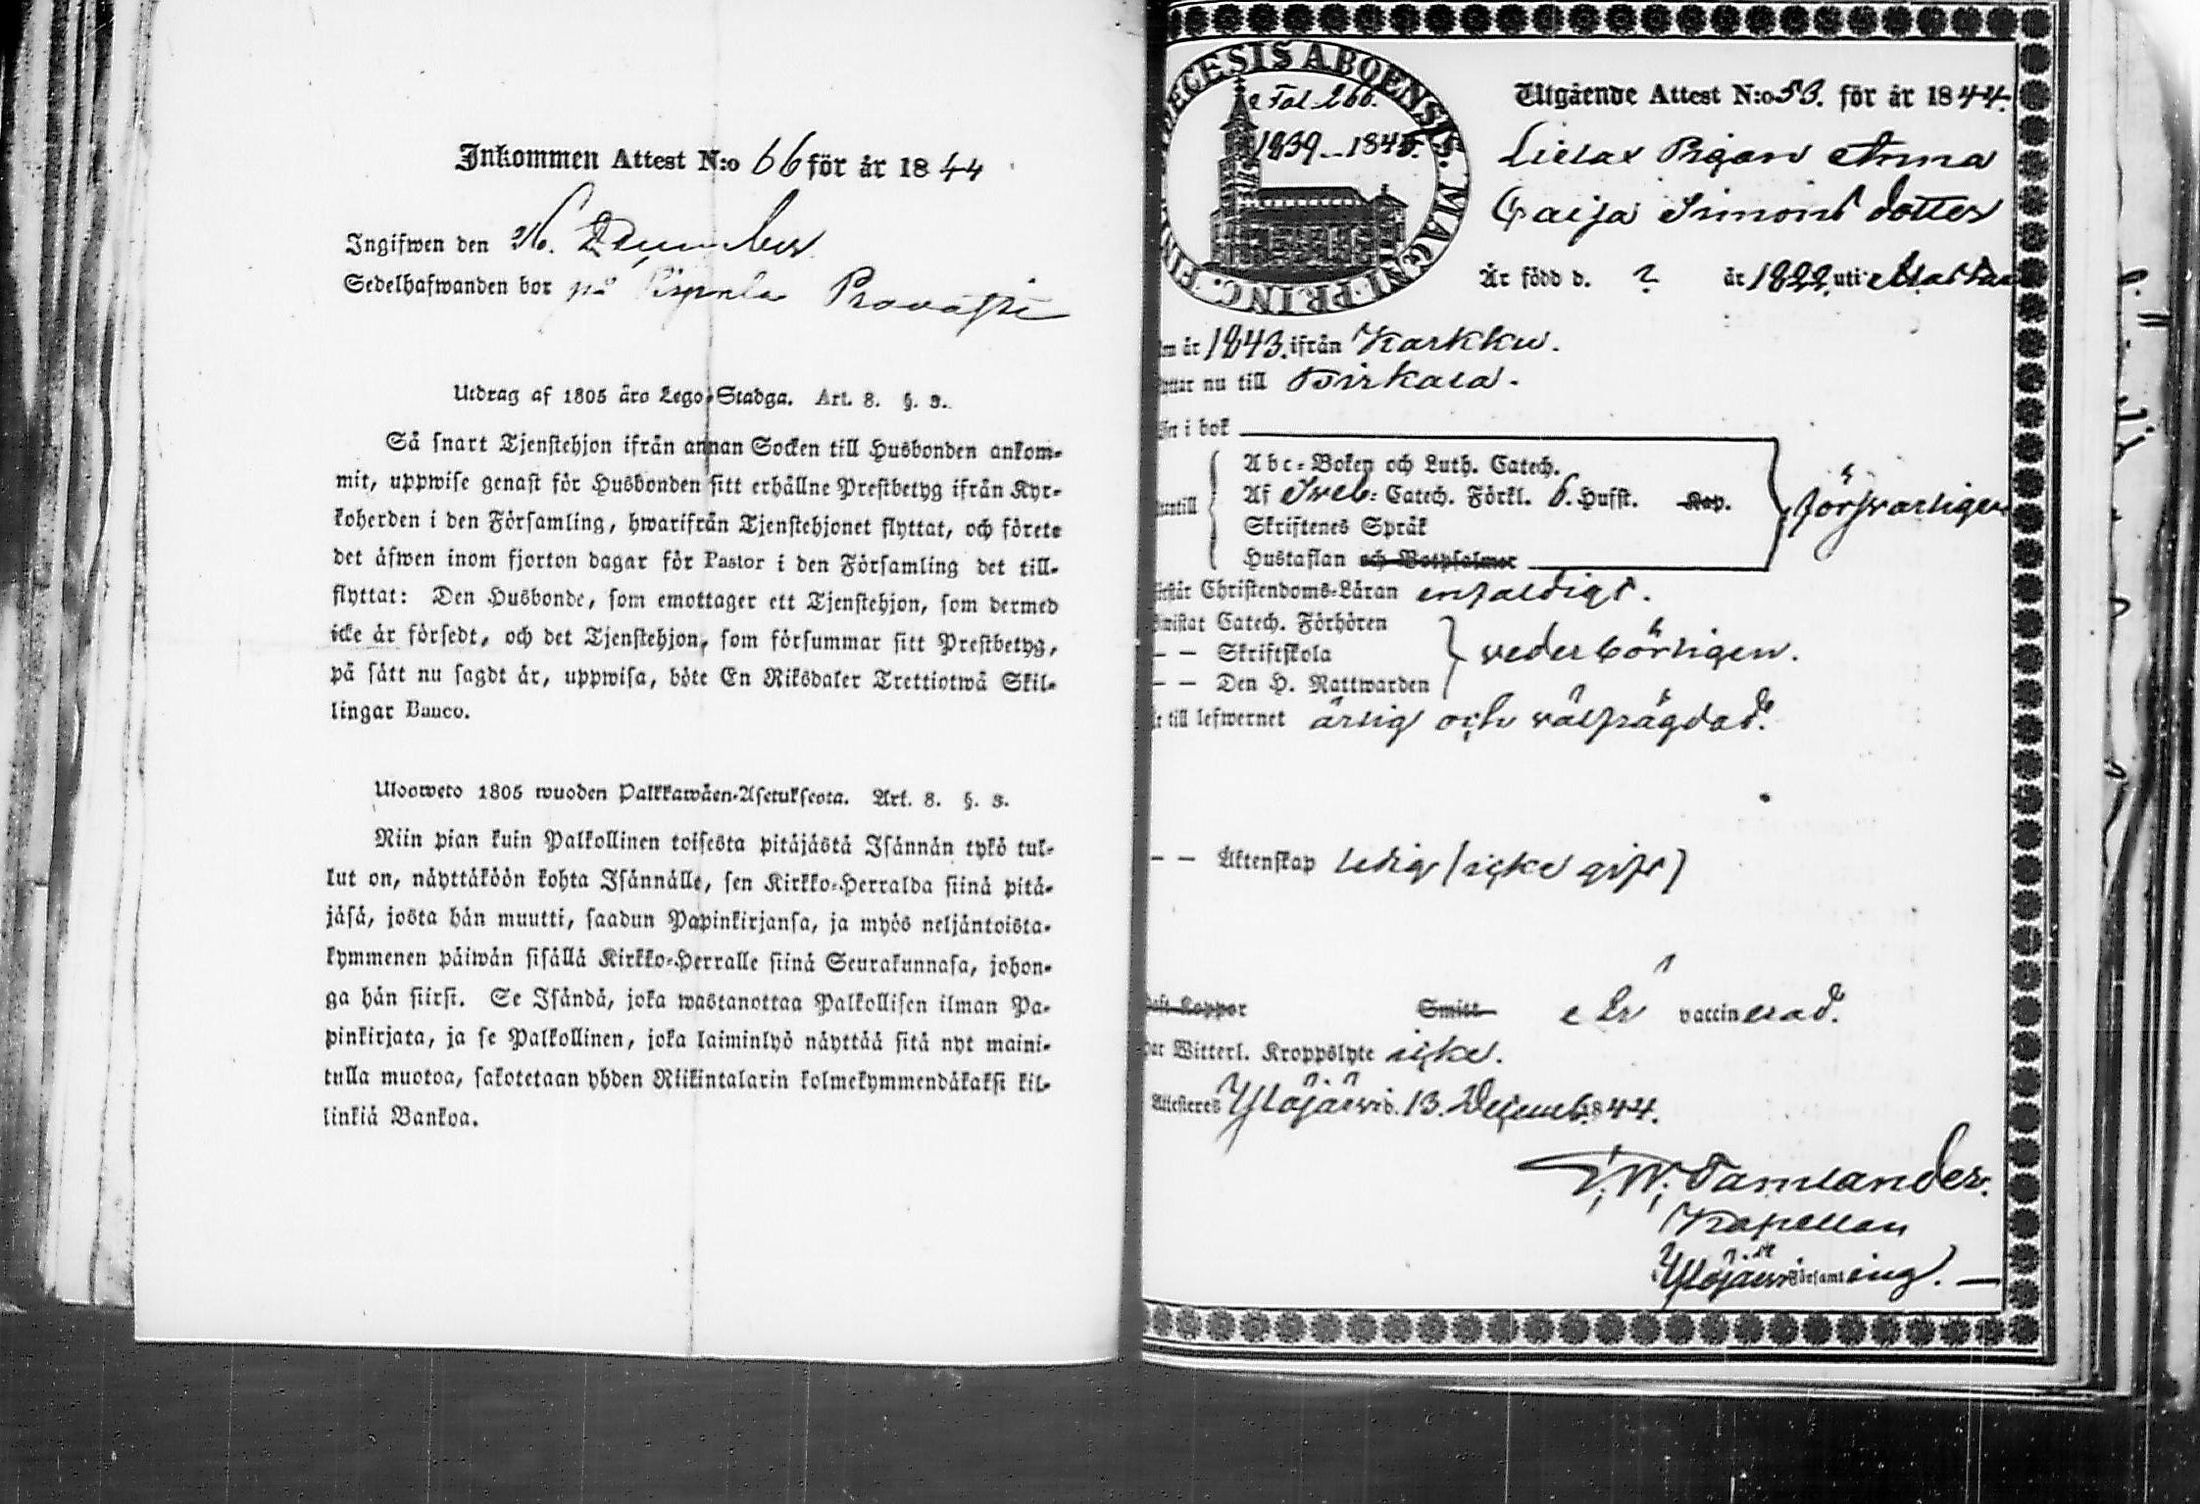 Inkommen Attest N:o 66 för år 1844
Ingifwen den 26. December
Sedelhafwanden bor på Pispala
Utdrag af 1805 års Lego-Stadga. Art. 8. §. 3.
Så snart Tjenstehjon ifrån annan Socken till Husbonden ankom-
mit, uppwise genast för Husbonden sitt erhållne Prestbetyg ifrån Kyr-
koherden i den Församling, hwarifrån Tjenstehjonet flyttat, och förete
det äfwen inom fjorton dagar för Pastor i den Församling det till-
flyttat: Den Husbonde, som emottager ett Tjenstehjon, som dermed
icke är försedt, och det Tjenstehjon, som försummar sitt Prestbetyg,
på sätt nu sagdt är, uppwisa, böte En Riksdaler Trettiotwå Skil-
lingar Banco.
Uloswето 1805 wuoden Palkkawäen-Asetuksesta. Art. 8. §. 3.
Niin pian kuin Palkollinen toisesta pitäjästä Isännän tykö tul-
lut on, näyttäköön kohta Isännälle, sen Kirkko-Herralda siinä pitä-
jäsä, josta hän muutti, saadun Papinkirjansa, ja myös neljäntoista-
kymmenen päiwän sisällä Kirkko-Herralle siinä Seurakunnasa, johon-
ga hän siirsi. Se Isändä, joka wastanottaa Palkollisen ilman Pa-
pinkirjata, ja se Palkollinen, joka laiminlyö näyttää sitä nyt maini-
tulla muotoa, sakotetaan yhden Riikintalarin kolmekymmendäkaksi kil-
linkiä Bankoa.
ECESIS ABOENSIS. MAGNI PRINC. FIN
Fol 266.
1839–1845.
Utgående Attest N:o 53. för år 1844.
Pigan Anna
Caija Simons dotter
Är född d. ? år 1822 uti
år 1843. ifrån Karkku.
nu till Birkala.
i bok
Abc-Boken och Luth. Catech.
Af Sveb: Catech. Förkl. 6. Hufst. Kap.
Skriftenes Språk
Hustaflan och Botpsalmer
försvarligen
Christendoms-Läran enfaldigt.
Catech. Förhören
– – Skriftskola
– – Den H. Nattwarden
vederbörligen.
till lefwernet ärlig och välfrägdad.
– – Äktenskap ledig (icke gift)
Koppor Smitt Är vaccinerad.
Witterl. Kroppslyte icke.
Attesteres Ylöjärvi d. 13. Decemb. 1844.
Tamlander.
Kapellan
i Ylöjärvi Församling. –